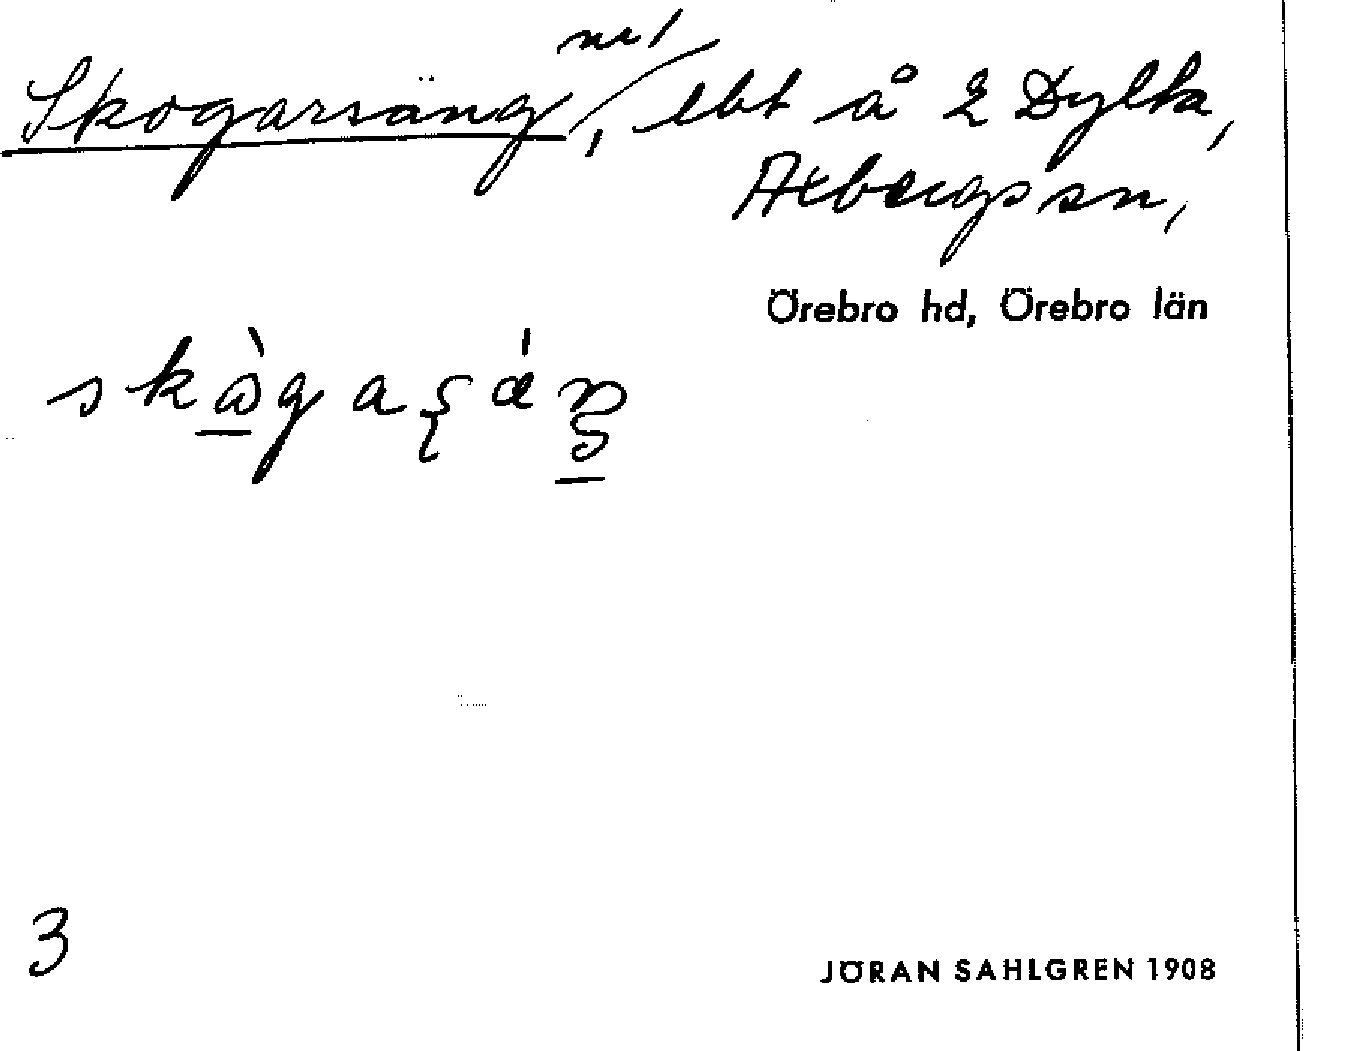 Skogarsäng, lbt å L Dylta,
Axbergs sn,
Örebro hd, Örebro län
3
JÖRAN SAHLGREN 1908